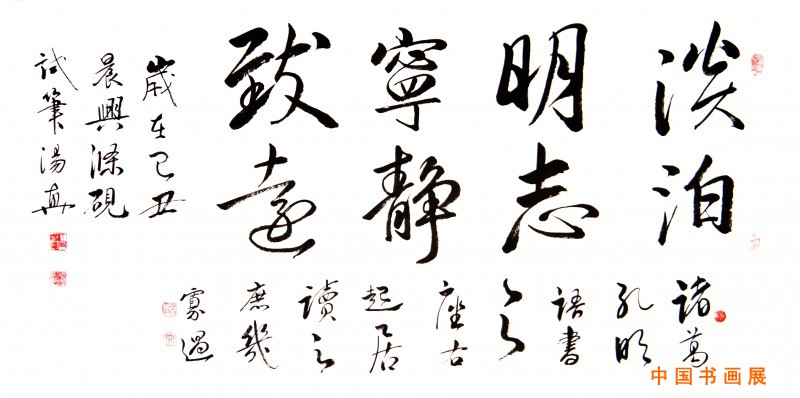 淡泊
明志
寧静
致遠
諸葛
孔明
語書
座右
起居
讀之
庶幾
寡過
歲在己丑
晨興滌硯
試筆湯真
中国书画展